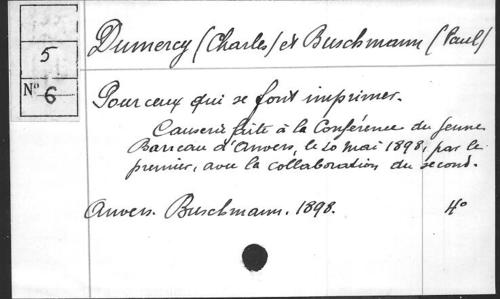 Dumercy (Charles) et Buschmann (Paul)
5
Nº 6
Pour ceux qui se font imprimer.
Causerie faite à la Conférence du Jeune
Barreau d'Anvers, le 20 mai 1898, par le
premier, avec la collaboration du second.
Anvers. Buschmann. 1898. 4º